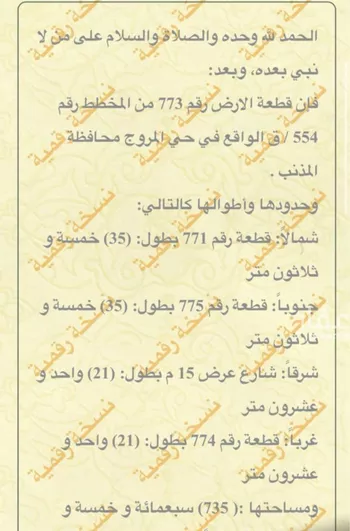 الحمد لله وحده والصلاة والسلام على من لا
نبي بعده، وبعد:
فإن قطعة الارض رقم 773 من المخطط رقم
554 / ق الواقع في حي المروج محافظة
المذنب .
وحدودها وأطوالها كالتالي:
شمالا: قطعة رقم 771 بطول: (35) خمسة و
ثلاثون متر
جنوباً: قطعة رقم 775 بطول: (35) خمسة و
ثلاثون متر
شرقاً: شارع عرض 15 م بطول: (21) واحد و
عشرون متر
غرباً: قطعة رقم 774 بطول: (21) واحد و
عشرون متر
ومساحتها :( 735) سبعمائة و خمسة و
نسخة رقمية